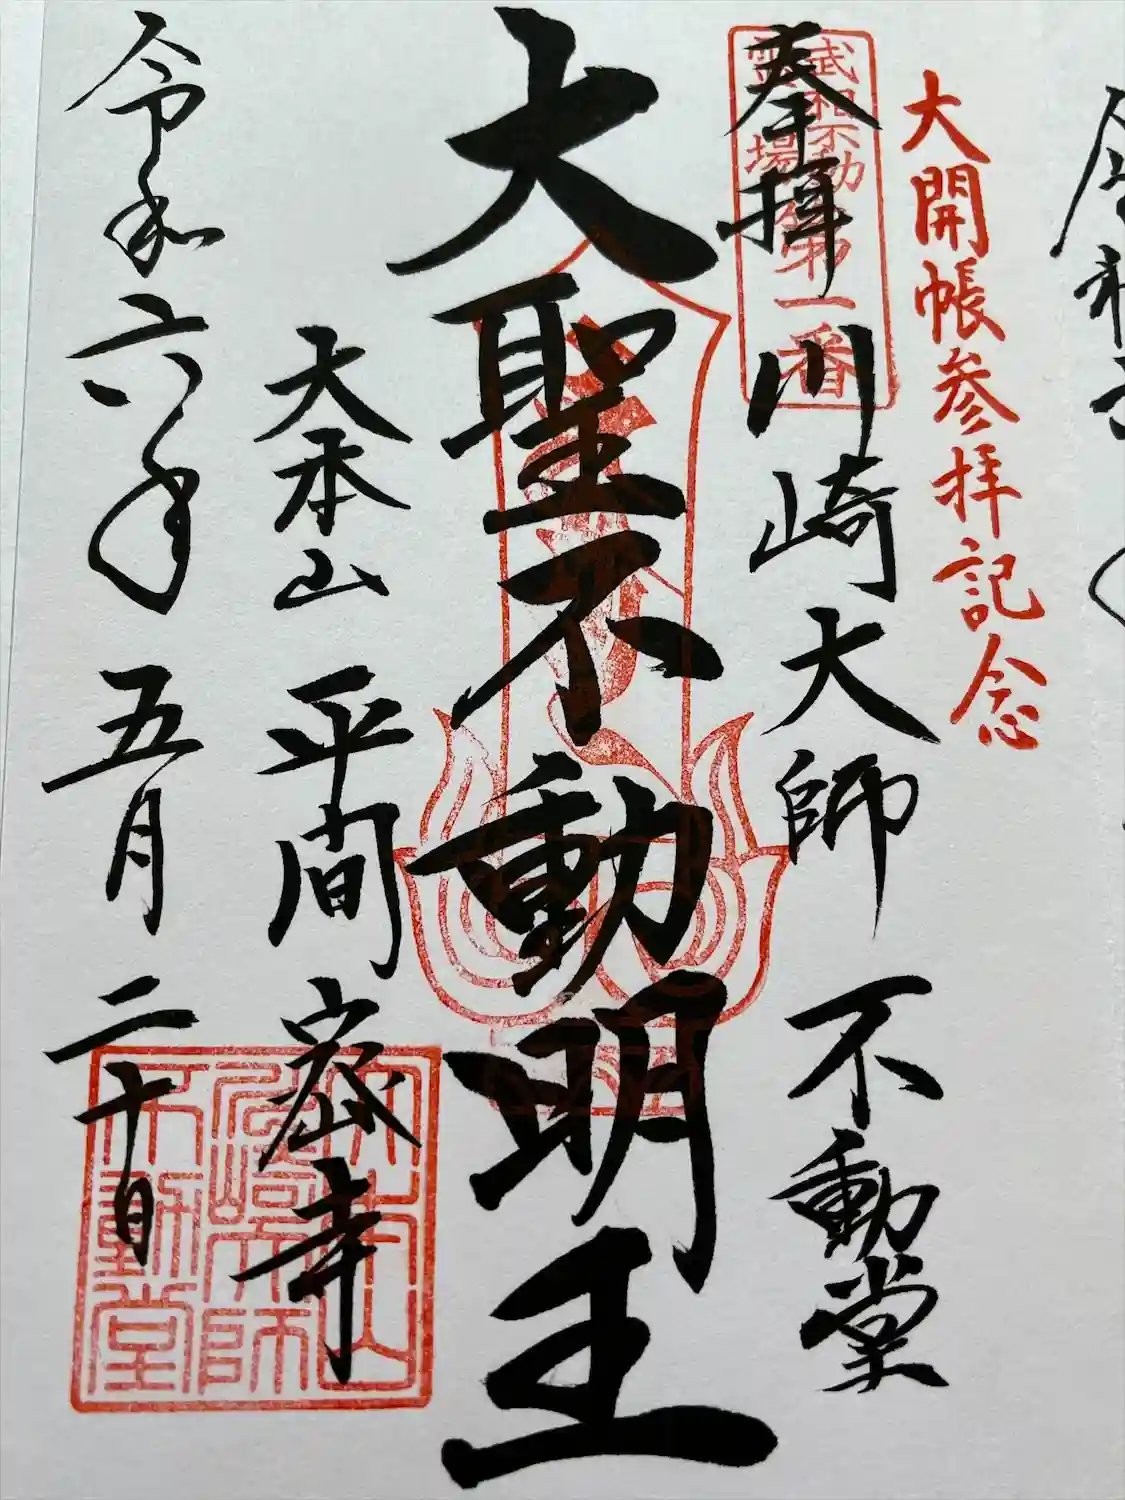 大開帳参拝記念
武相不動
霊場
第一番
奉拝
川崎大師 不動堂
大聖不動明王
大本山 平間密寺
令和六年 五月 二十日
大本山
川崎大師
不動堂